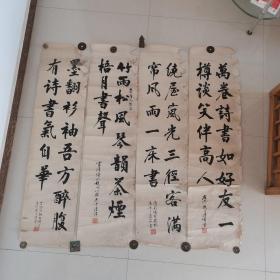 萬卷詩書如好友一
樽談笑伴高人
繞屋嵐光三徑客滿
帘風雨一床書
竹雨松風琴韻茶煙
梧月書聲
墨翻衫袖吾方醉腹
有詩書氣自華